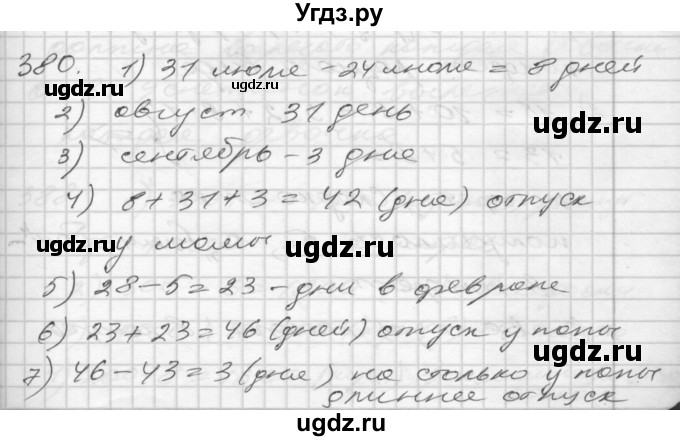 Угдз.ру
380. 1) 31 июля - 24 июля = 8 дней
ugdz.ru ugdz.ru
2) август 31 день
3) сентябрь - 3 дня
ugdz.ru ugdz.ru
4) 8 + 31 + 3 = 42 (дня) отпуск
у мамы
ugdz.ru ugdz.ru
5) 28 - 5 = 23 - дни в феврале
6) 23 + 23 = 46 (дней) отпуск у папы
ugdz.ru ugdz.ru
7) 46 - 43 = 3 (дня) на столько у папы
длиннее отпуск
ugdz.ru ugdz.ru